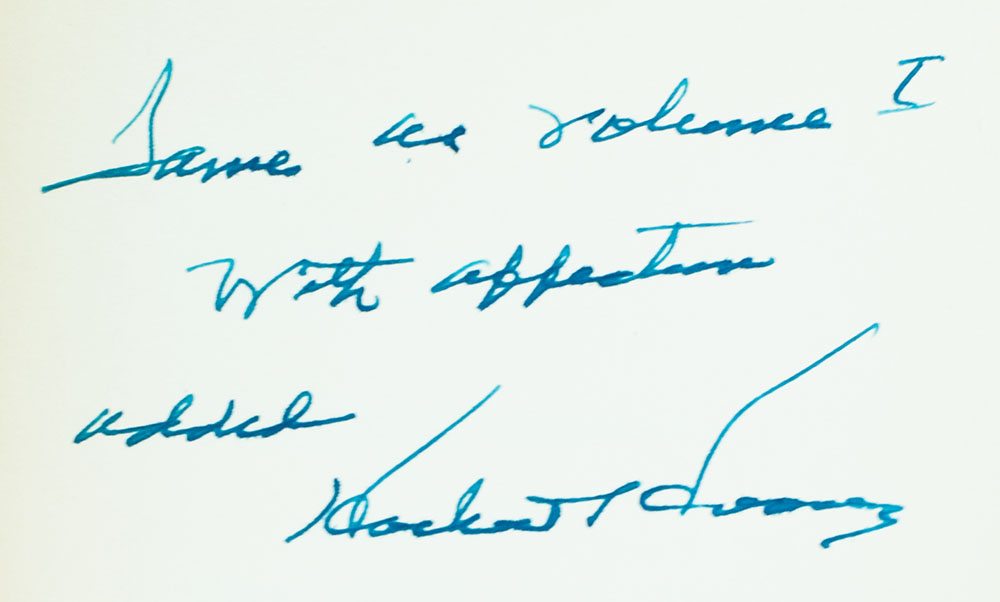 Same as volume I
With affection
added
Herbert Hoover